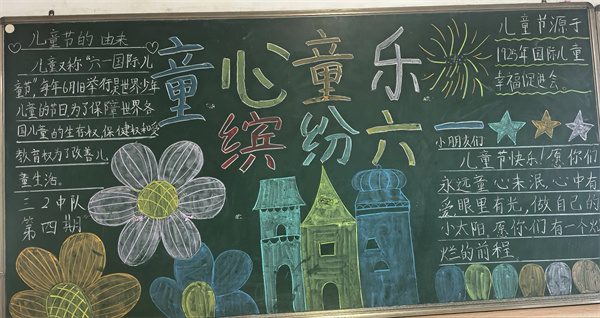 儿童节的 由来
儿童又称"六一国际儿
童节"每年6月1日举行是世界少年
儿童的节日为了保障世界各
国儿童的生存权、保健权和受
教育权为了改善儿
童生活。
三2中队
第四期
童心童乐
缤纷六一
儿童节源于
1925年国际儿童
幸福促进会
小朋友们
儿童节快乐!愿你们
永远童心未泯,心中有
爱眼里有光,做自己的
小太阳,愿你们有一个灿
烂的前程